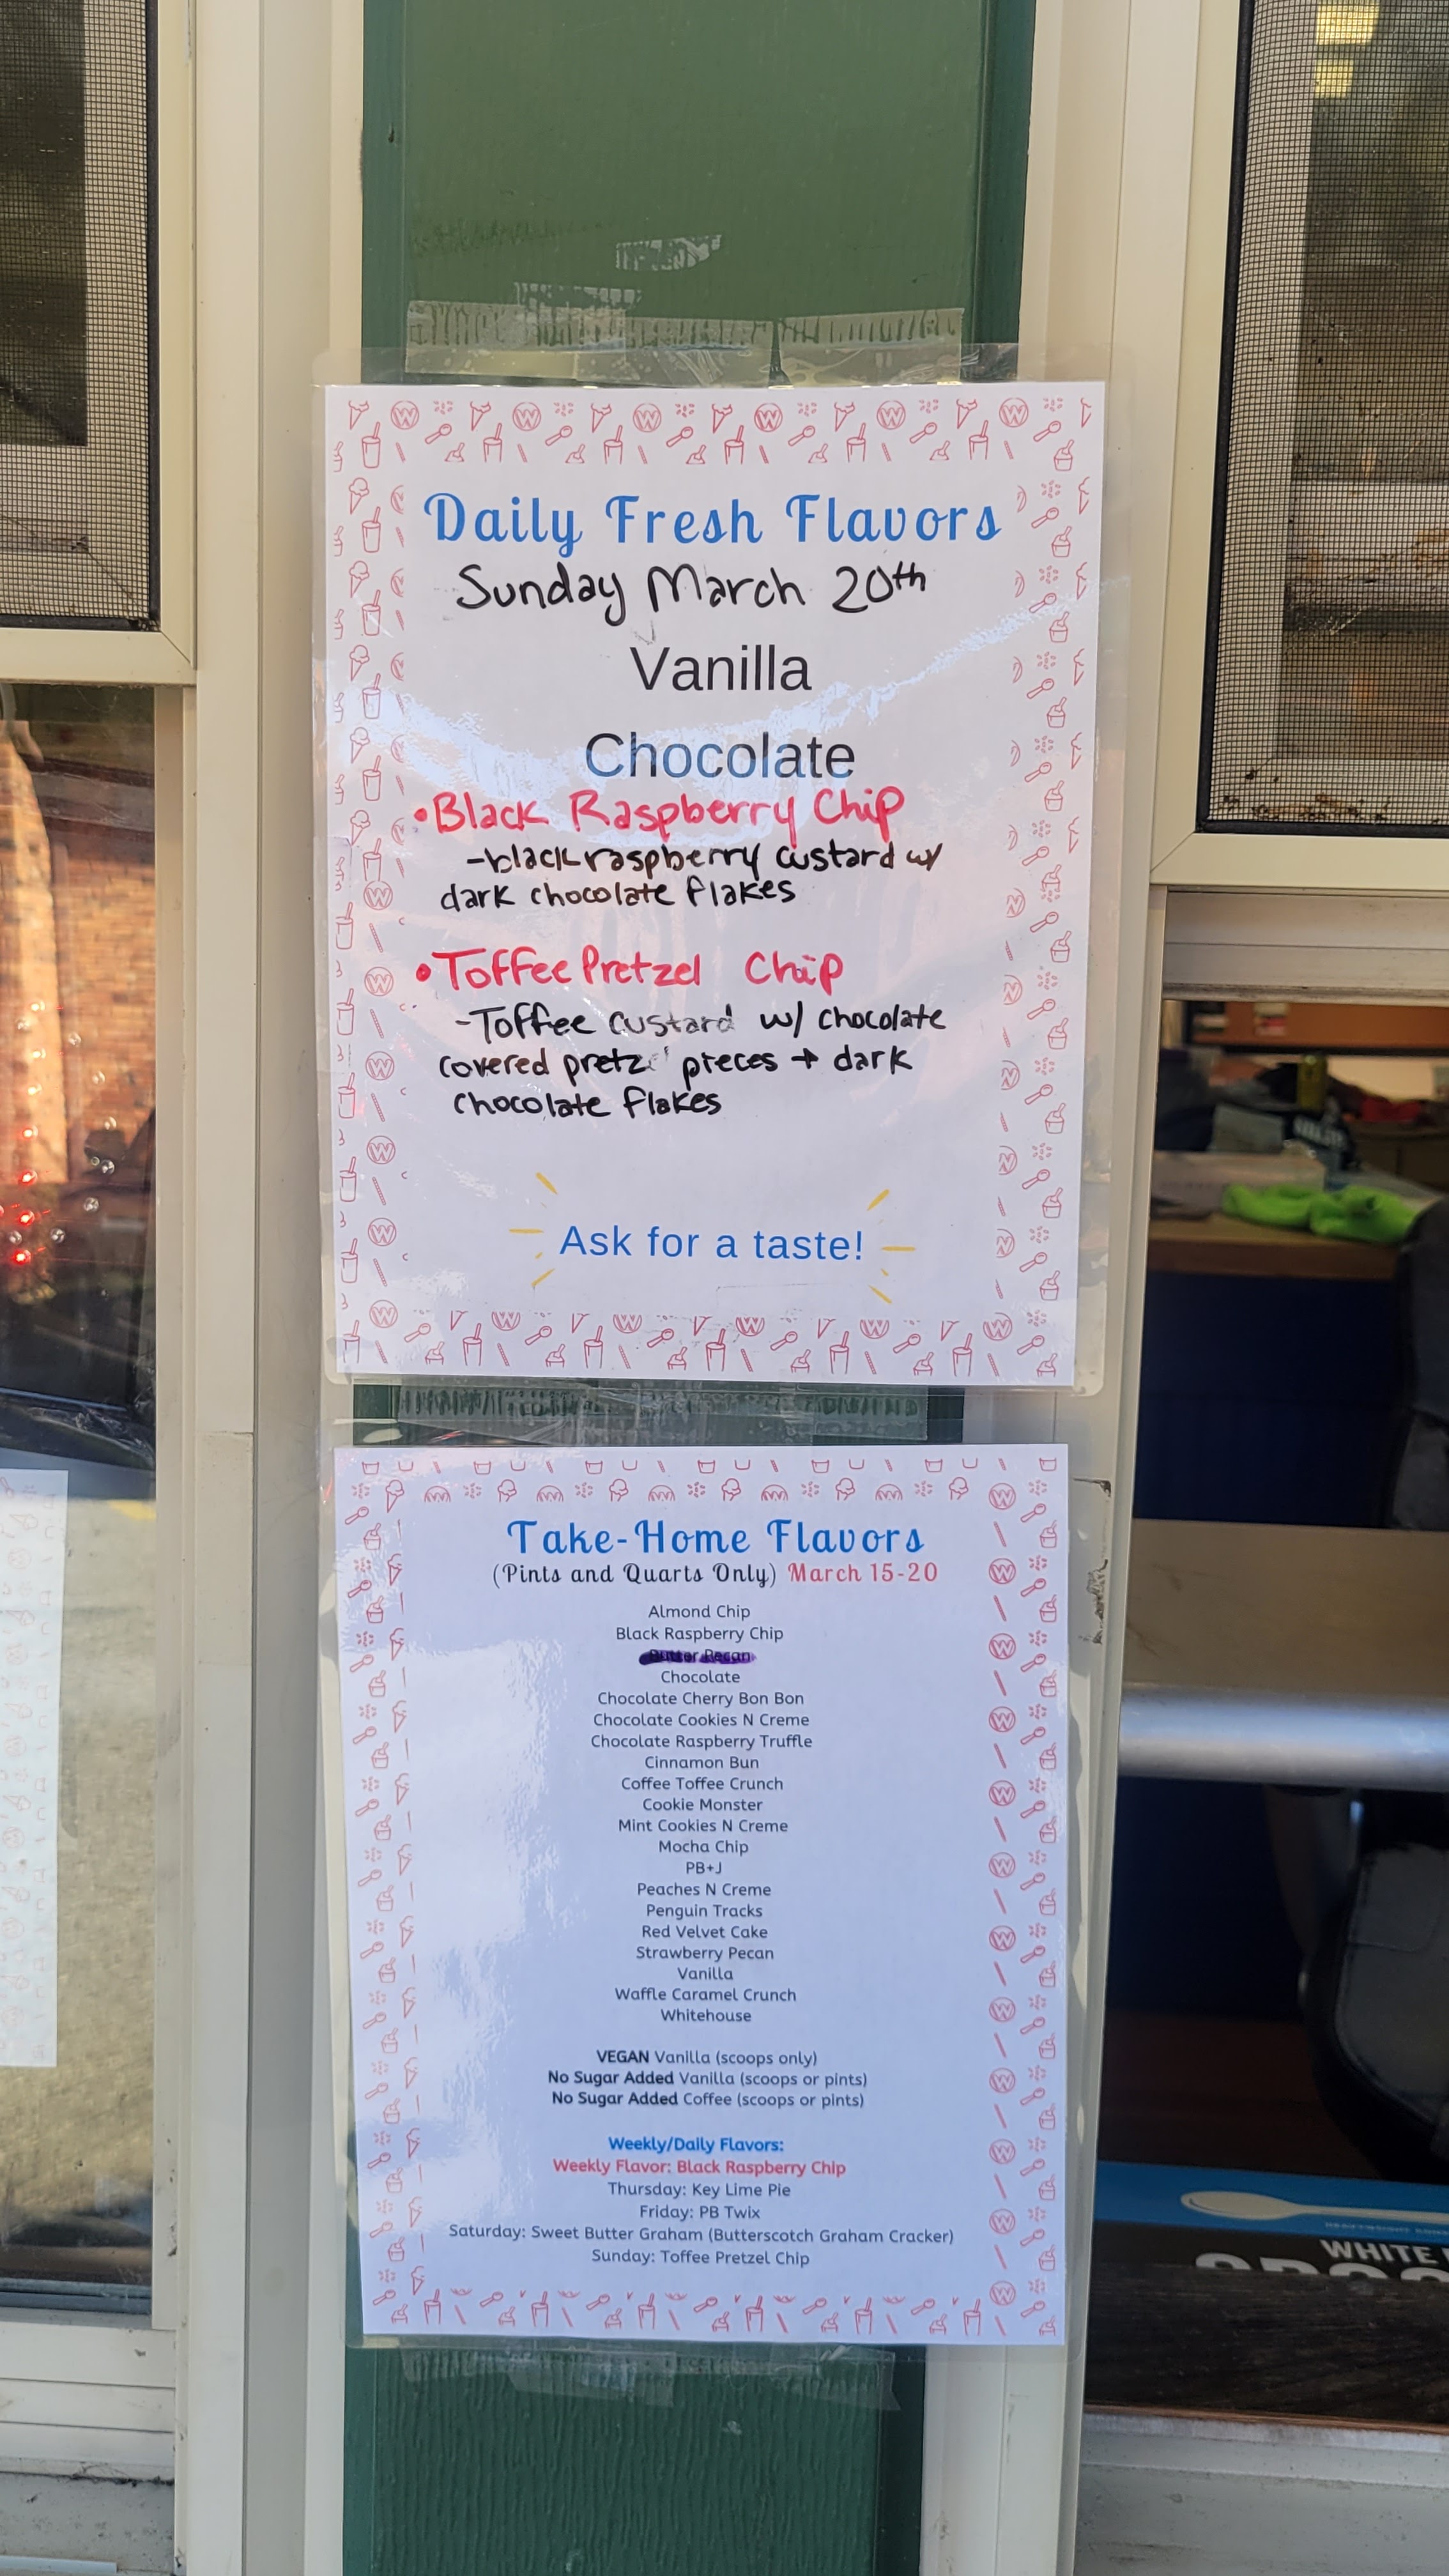 Daily Fresh Flavors
Sunday March 20th
Vanilla
Chocolate
• Black Raspberry Chip
- black raspberry custard w/
dark chocolate flakes
• Toffee Pretzel Chip
- Toffee custard w/ chocolate
covered pretz pieces + dark
chocolate flakes
Ask for a taste!
Take-Home Flavors
(Pints and Quarts Only) March 15-20
Almond Chip
Black Raspberry Chip
Butter Pecan
Chocolate
Chocolate Cherry Bon Bon
Chocolate Cookies N Creme
Chocolate Raspberry Truffle
Cinnamon Bun
Coffee Toffee Crunch
Cookie Monster
Mint Cookies N Creme
Mocha Chip
PB+J
Peaches N Creme
Penguin Tracks
Red Velvet Cake
Strawberry Pecan
Vanilla
Waffle Caramel Crunch
Whitehouse
VEGAN Vanilla (scoops only)
No Sugar Added Vanilla (scoops or pints)
No Sugar Added Coffee (scoops or pints)
Weekly/Daily Flavors:
Weekly Flavor: Black Raspberry Chip
Thursday: Key Lime Pie
Friday: PB Twix
Saturday: Sweet Butter Graham (Butterscotch Graham Cracker)
Sunday: Toffee Pretzel Chip
WHITE